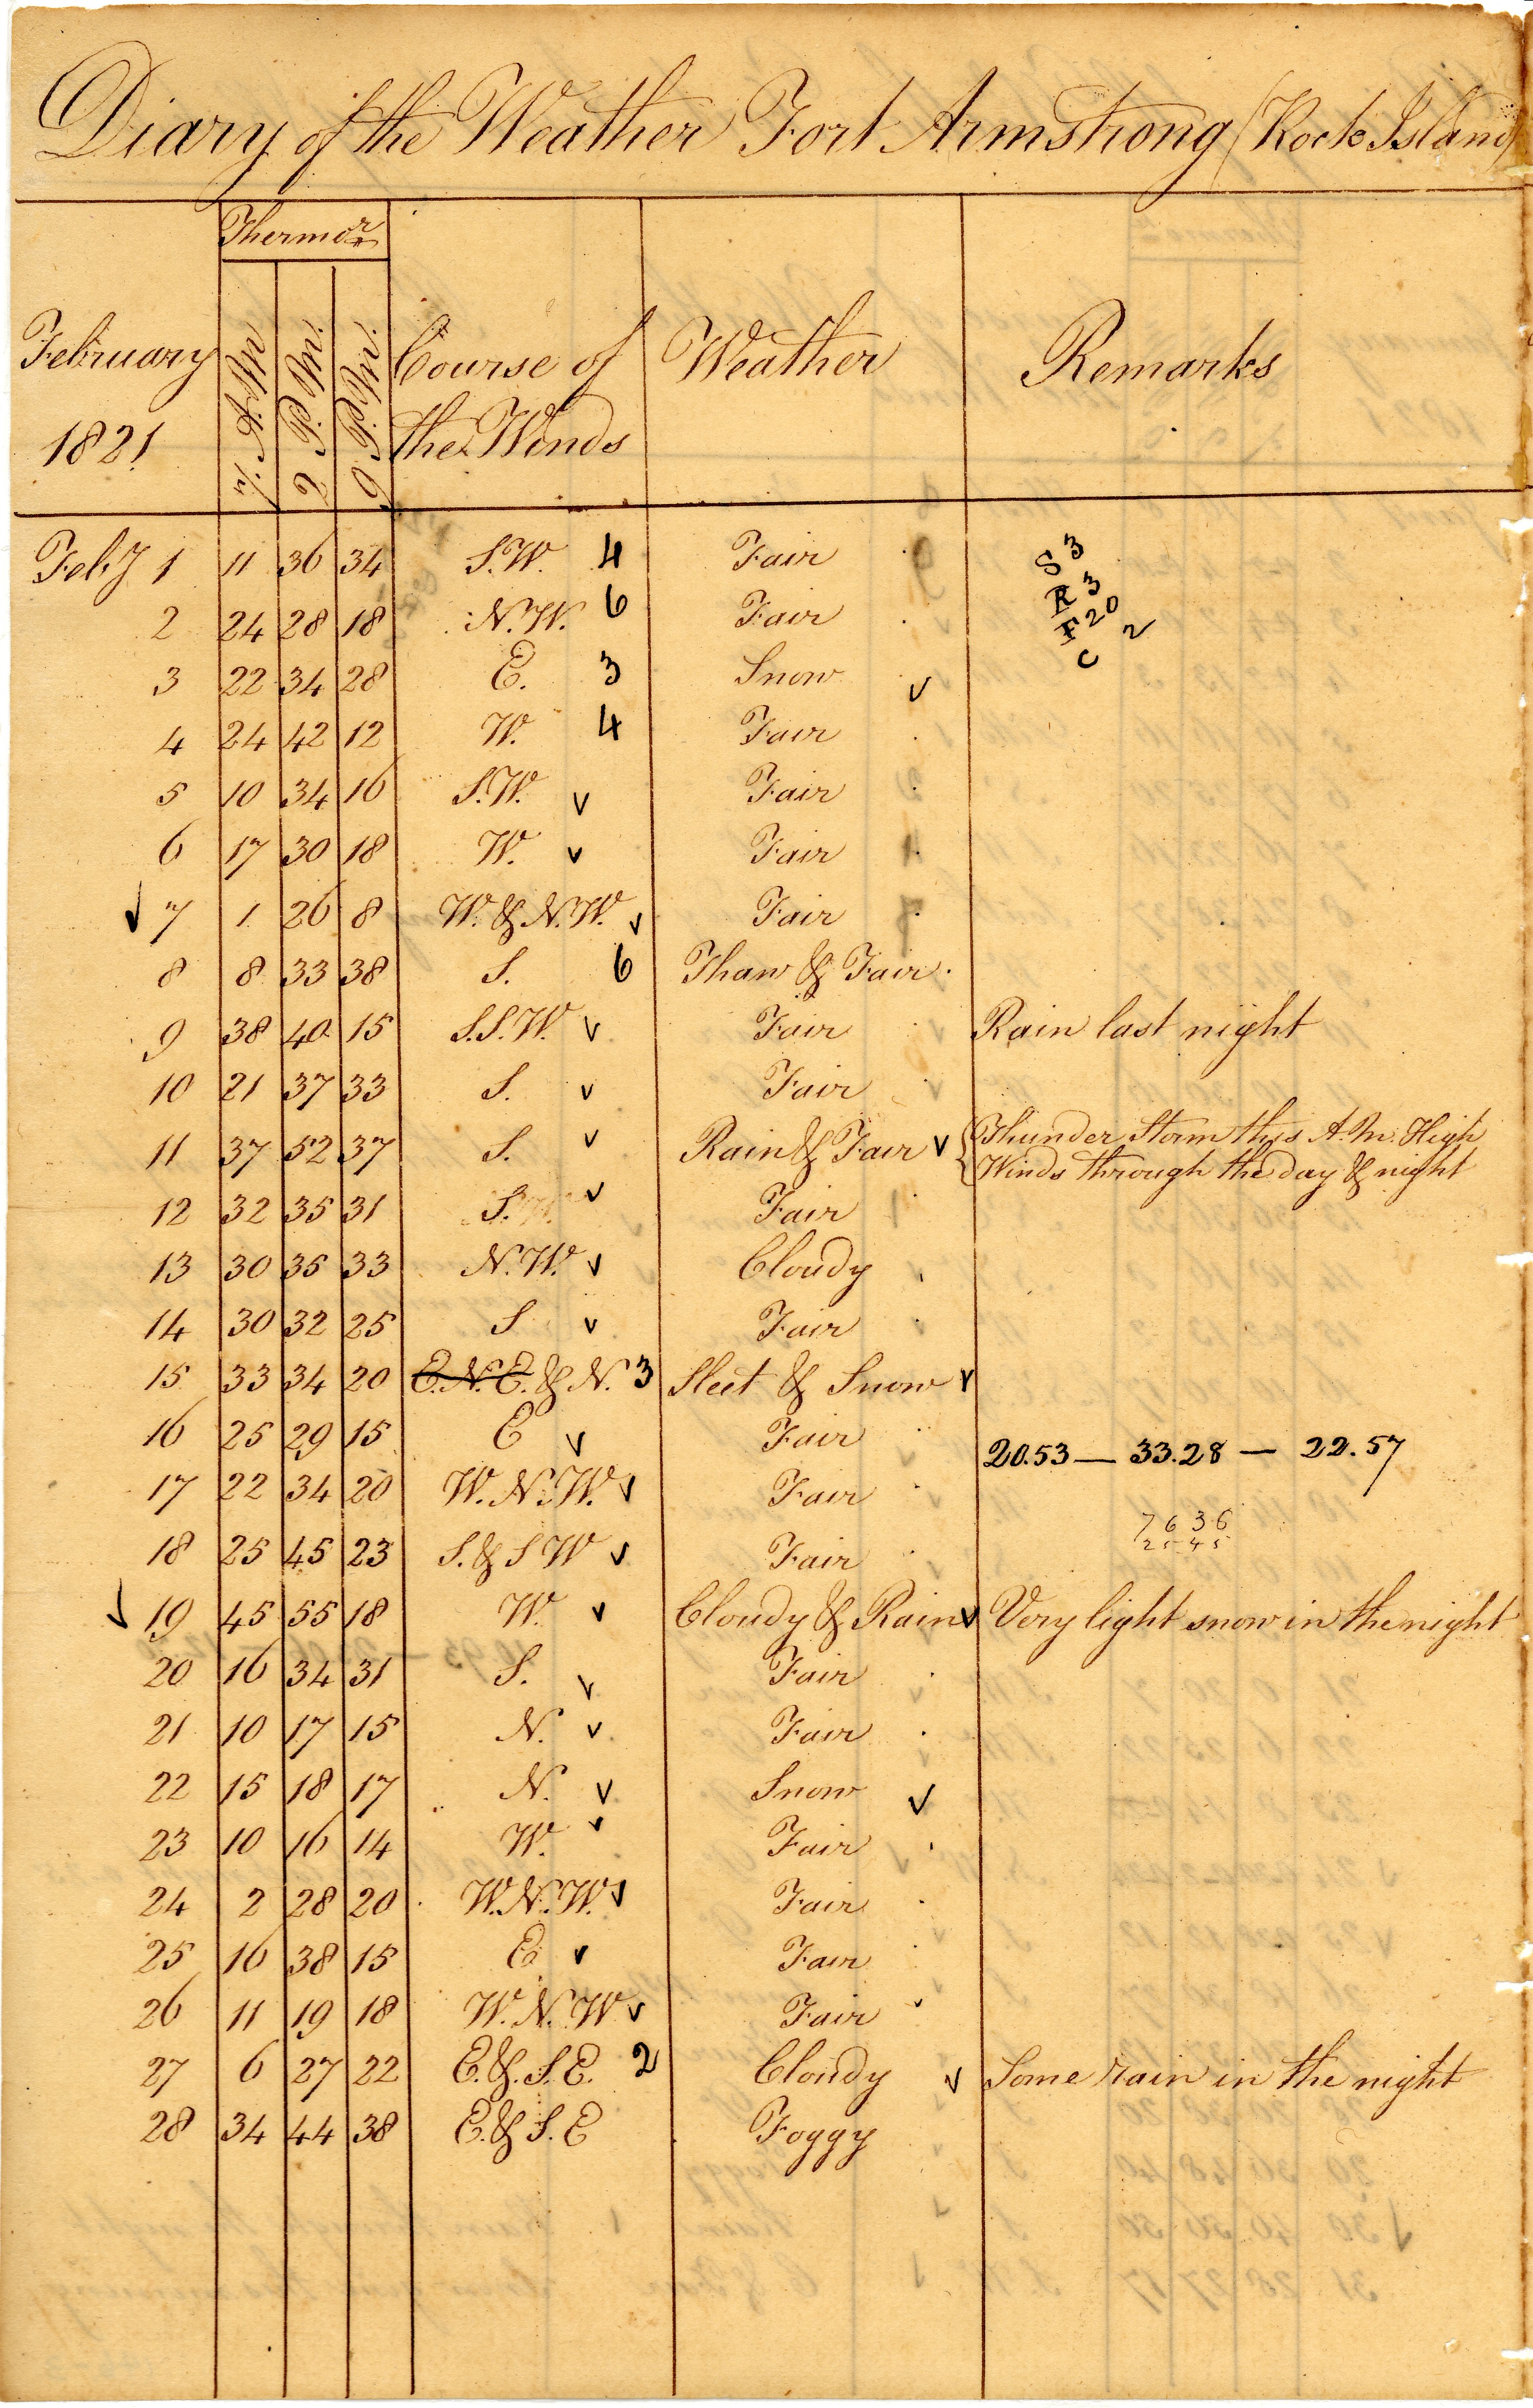 Diary of the Weather Fort Armstrong (Rock Island)
Thermor
February
1821
7 A.M.
2 P.M.
9 P.M.
Course of
the Winds
Weather
Remarks
Feby 1 11 36 34 S.W. 4 Fair S 3
2 24 28 18 N.W. 6 Fair R 3
F 20
3 22 34 28 E. 3 Snow v C 2
4 24 42 12 W. 4 Fair
5 10 34 16 S.W. v Fair
6 17 30 18 W. v Fair
✓ 7 1 26 8 W. & N.W. v Fair
8 8 33 38 S. 6 Thaw & Fair
9 38 40 15 S.S.W. v Fair Rain last night
10 21 37 33 S. v Fair
11 37 52 37 S. v Rain & Fair v { Thunder Storm this A.M. High
Winds through the day & night
12 32 35 31 S. v Fair
13 30 35 33 N.W. v Cloudy
14 30 32 25 S v Fair
15 33 34 20 E.N.E. & N. 3 Sleet & Snow v
16 25 29 15 E v Fair
20.53 — 33.28 — 22.57
17 22 34 20 W.N.W. v Fair
7636
2545
18 25 45 23 S. & S W v Fair
✓ 19 45 55 18 W. v Cloudy & Rain v Very light snow in the night
20 16 34 31 S. v Fair
21 10 17 15 N. v Fair
22 15 18 17 N. v Snow v
23 10 16 14 W. v Fair
24 2 28 20 W.N.W. v Fair
25 16 38 15 E v Fair
26 11 19 18 W.N.W v Fair
27 6 27 22 E. & S.E. 2 Cloudy v Some rain in the night
28 34 44 38 E. & S.E Foggy